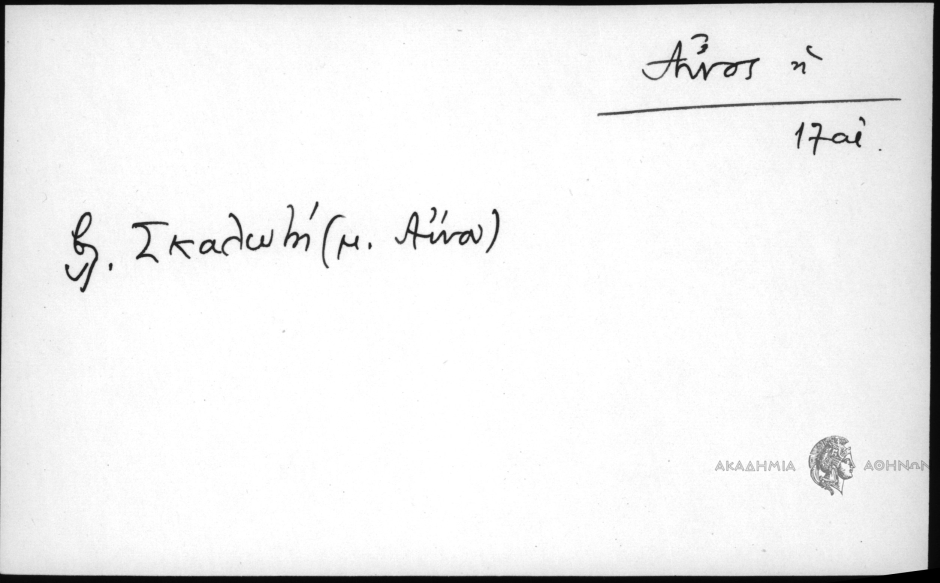 Αἶνος ἡ
17αἰ.
βλ. Σκαλωτή (μ. Αἴνου)
ΑΚΑΔΗΜΙΑ ΑΘΗΝΩΝ